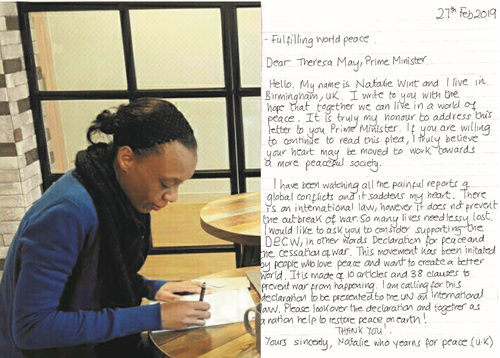 27th Feb 2019
- Fulfilling world peace
Dear Theresa May, Prime Minister
Hello. My name is Natalie Wint and I live in
Birmingham, UK. I write to you with the
hope that together we can live in a world of
peace. It is truly my honour to address this
letter to you Prime Minister. If you are willing
to continue to read this pled, I truly believe
your heart may be moved to work towards
a more peaceful society.
I have been watching all the painful reports a
global conflicts and it saddens my heart. There
is an international law, however it does not prevent
the outbreak of war. So many lives needlessly lost.
I would like to ask you to consider supporting the
DECW, in other words Declaration for peace and
the cessation of war. This movement has been initated
by people who love peace and want to create a better
world. It is made of 10 articles and 38 clauses to
prevent war from happening. I am calling for this
declaration to be presented to the UN as international
law. Please look over the declaration and together as
a nation help to restore peace on earth!
THANK YOU!
Yours sincerely, Natalie who yearns for peace (U.K)